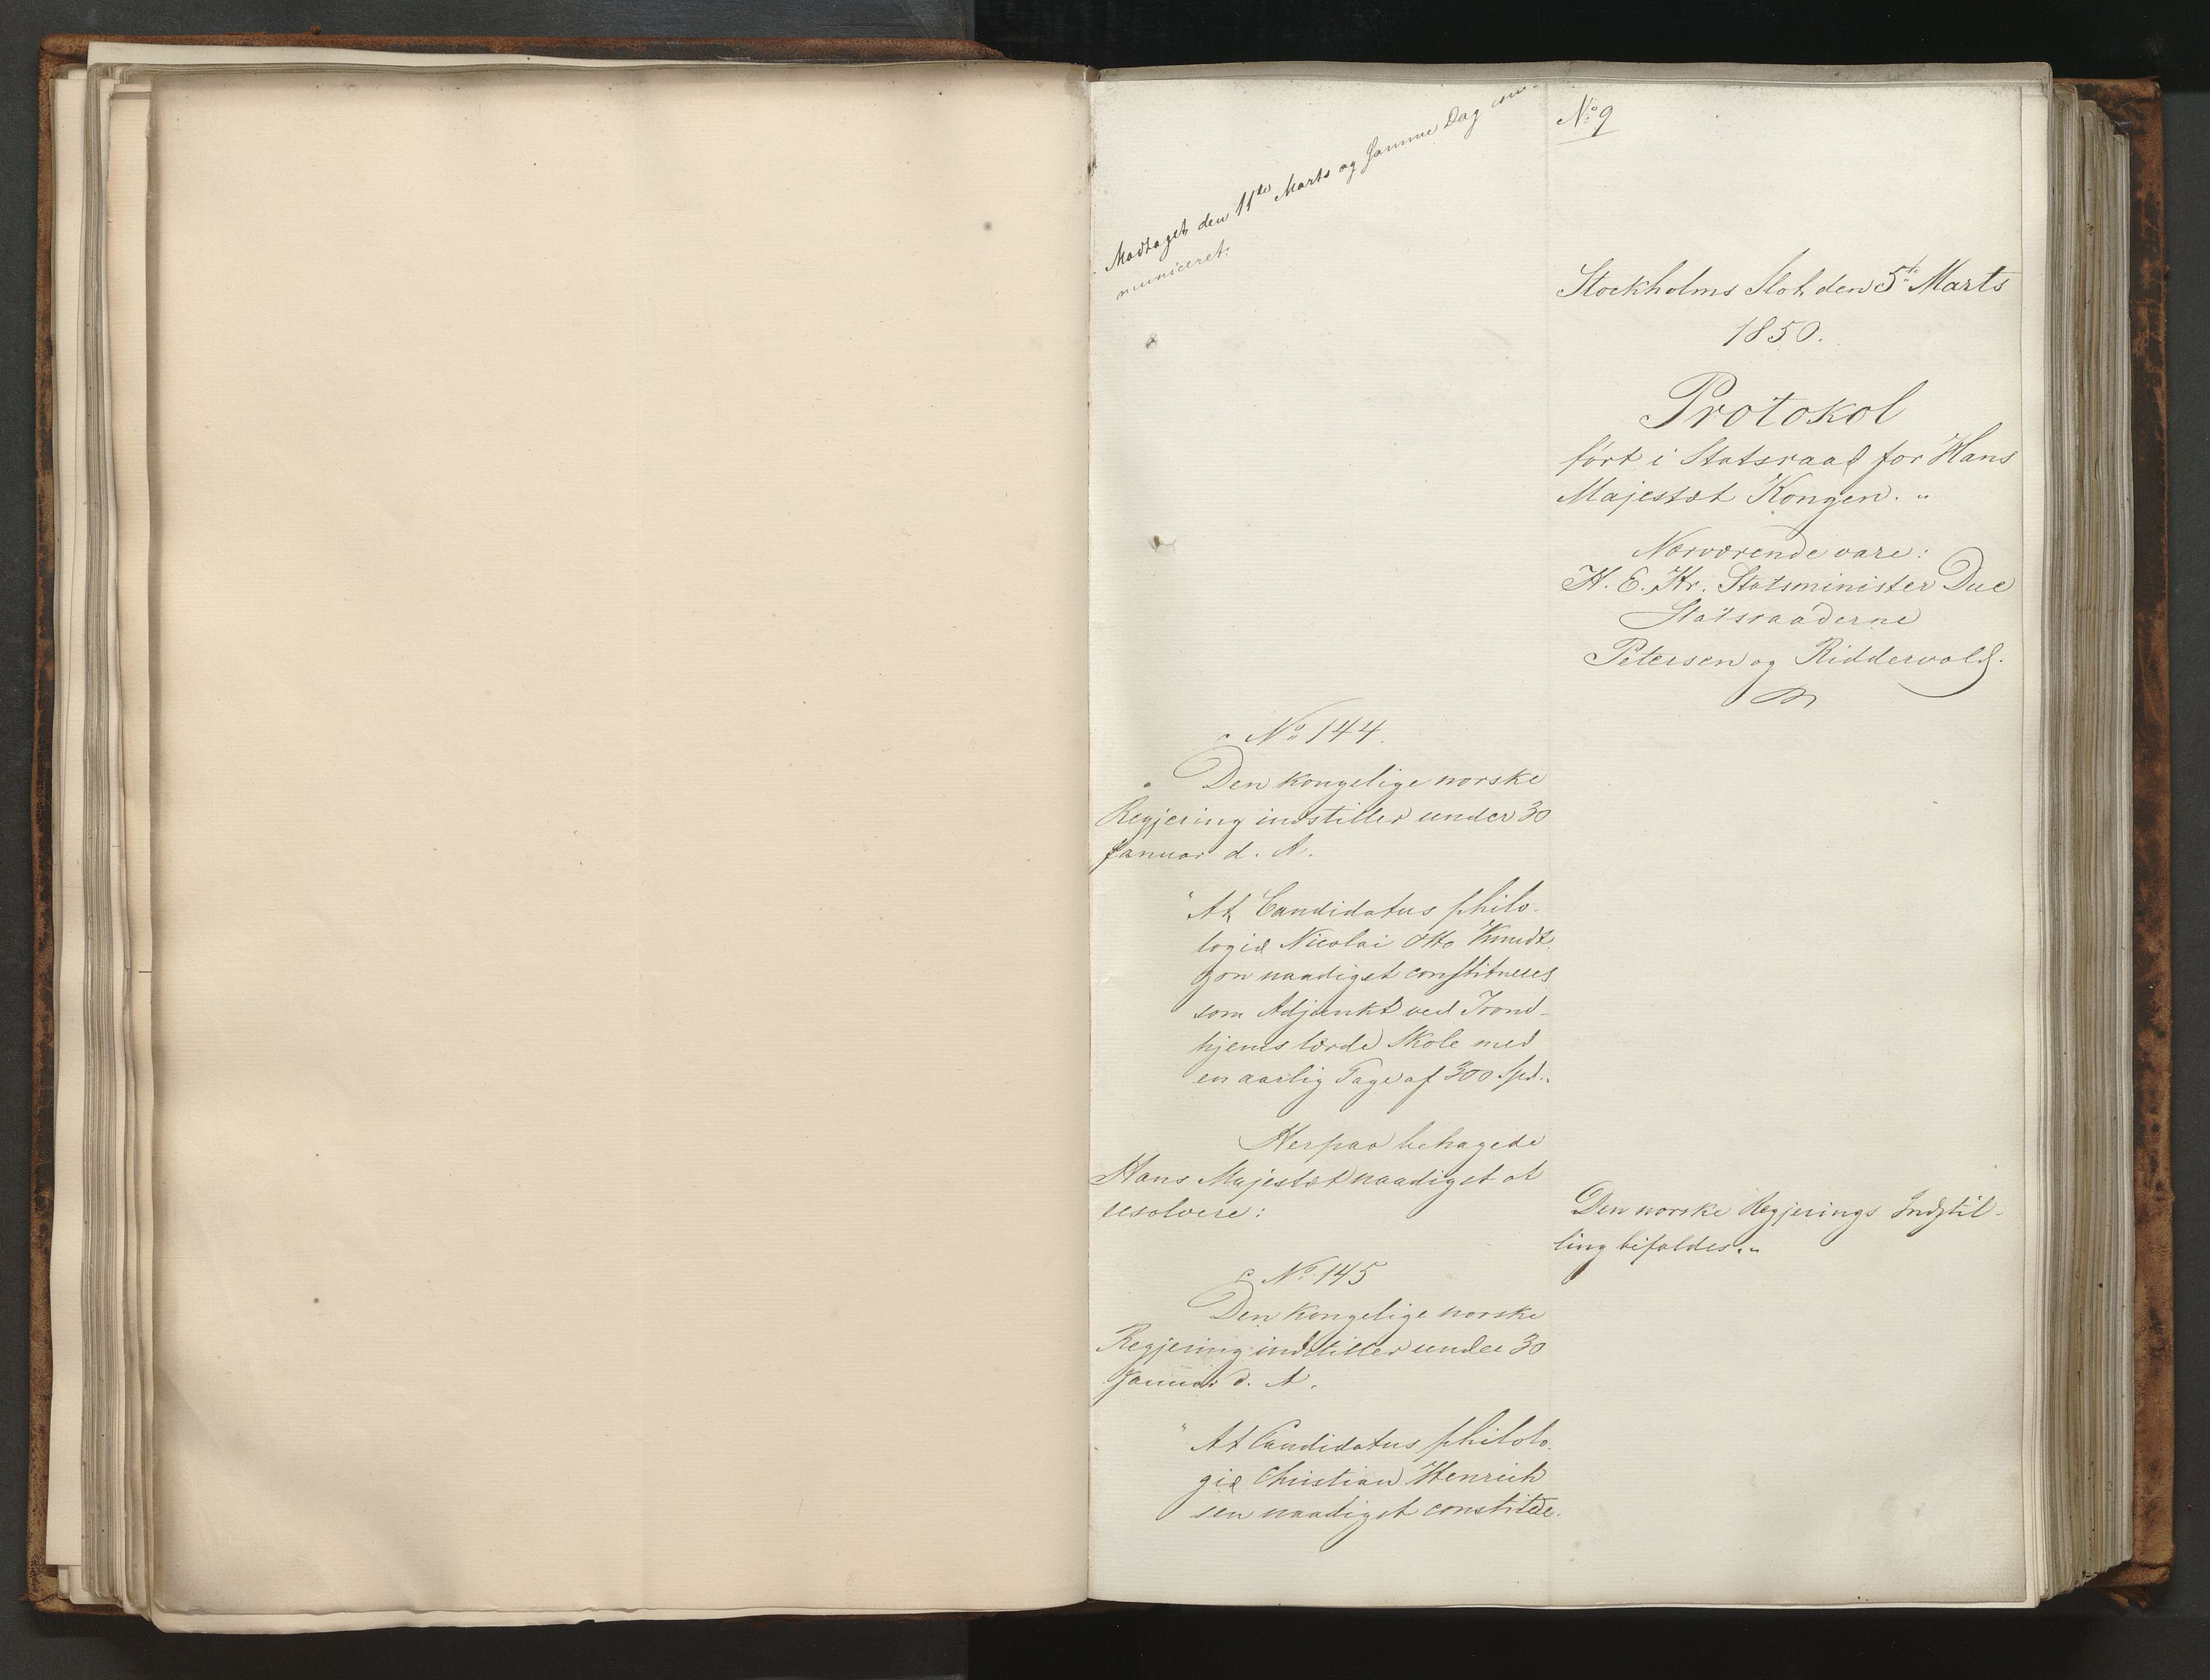 Modtaget den 11te Marts og samme Dag com-
municeret.
No 9
Stockholms Slot den 5te Marts
1850.
Protokol
ført i Statsraad for Hans
Majestæt Kongen.
Nærværende vare:
H. E. Hr. Statsminister Due
Statsraaderne
Petersen og Riddervold.
No 144.
Den kongelige norske
Regjering indstiller under 30
Januar d. A.
"At Candidatus philo-
logiæ Nicolai Otto Knudt
zon naadigst constitueres
som Adjunkt ved Trond-
hjems lærde Skole med
en aarlig Gage af 300 Spd."
Herpaa behagede
Hans Majestæt naadigst at
resolvere:
Den norske Regjerings Indstil-
ling bifaldes."
No 145
Den kongelige norske
Regjering indstiller under 30
Januar d. A.
"At Candidatus philolo-
giæ Christian Henrich
sen naadigst